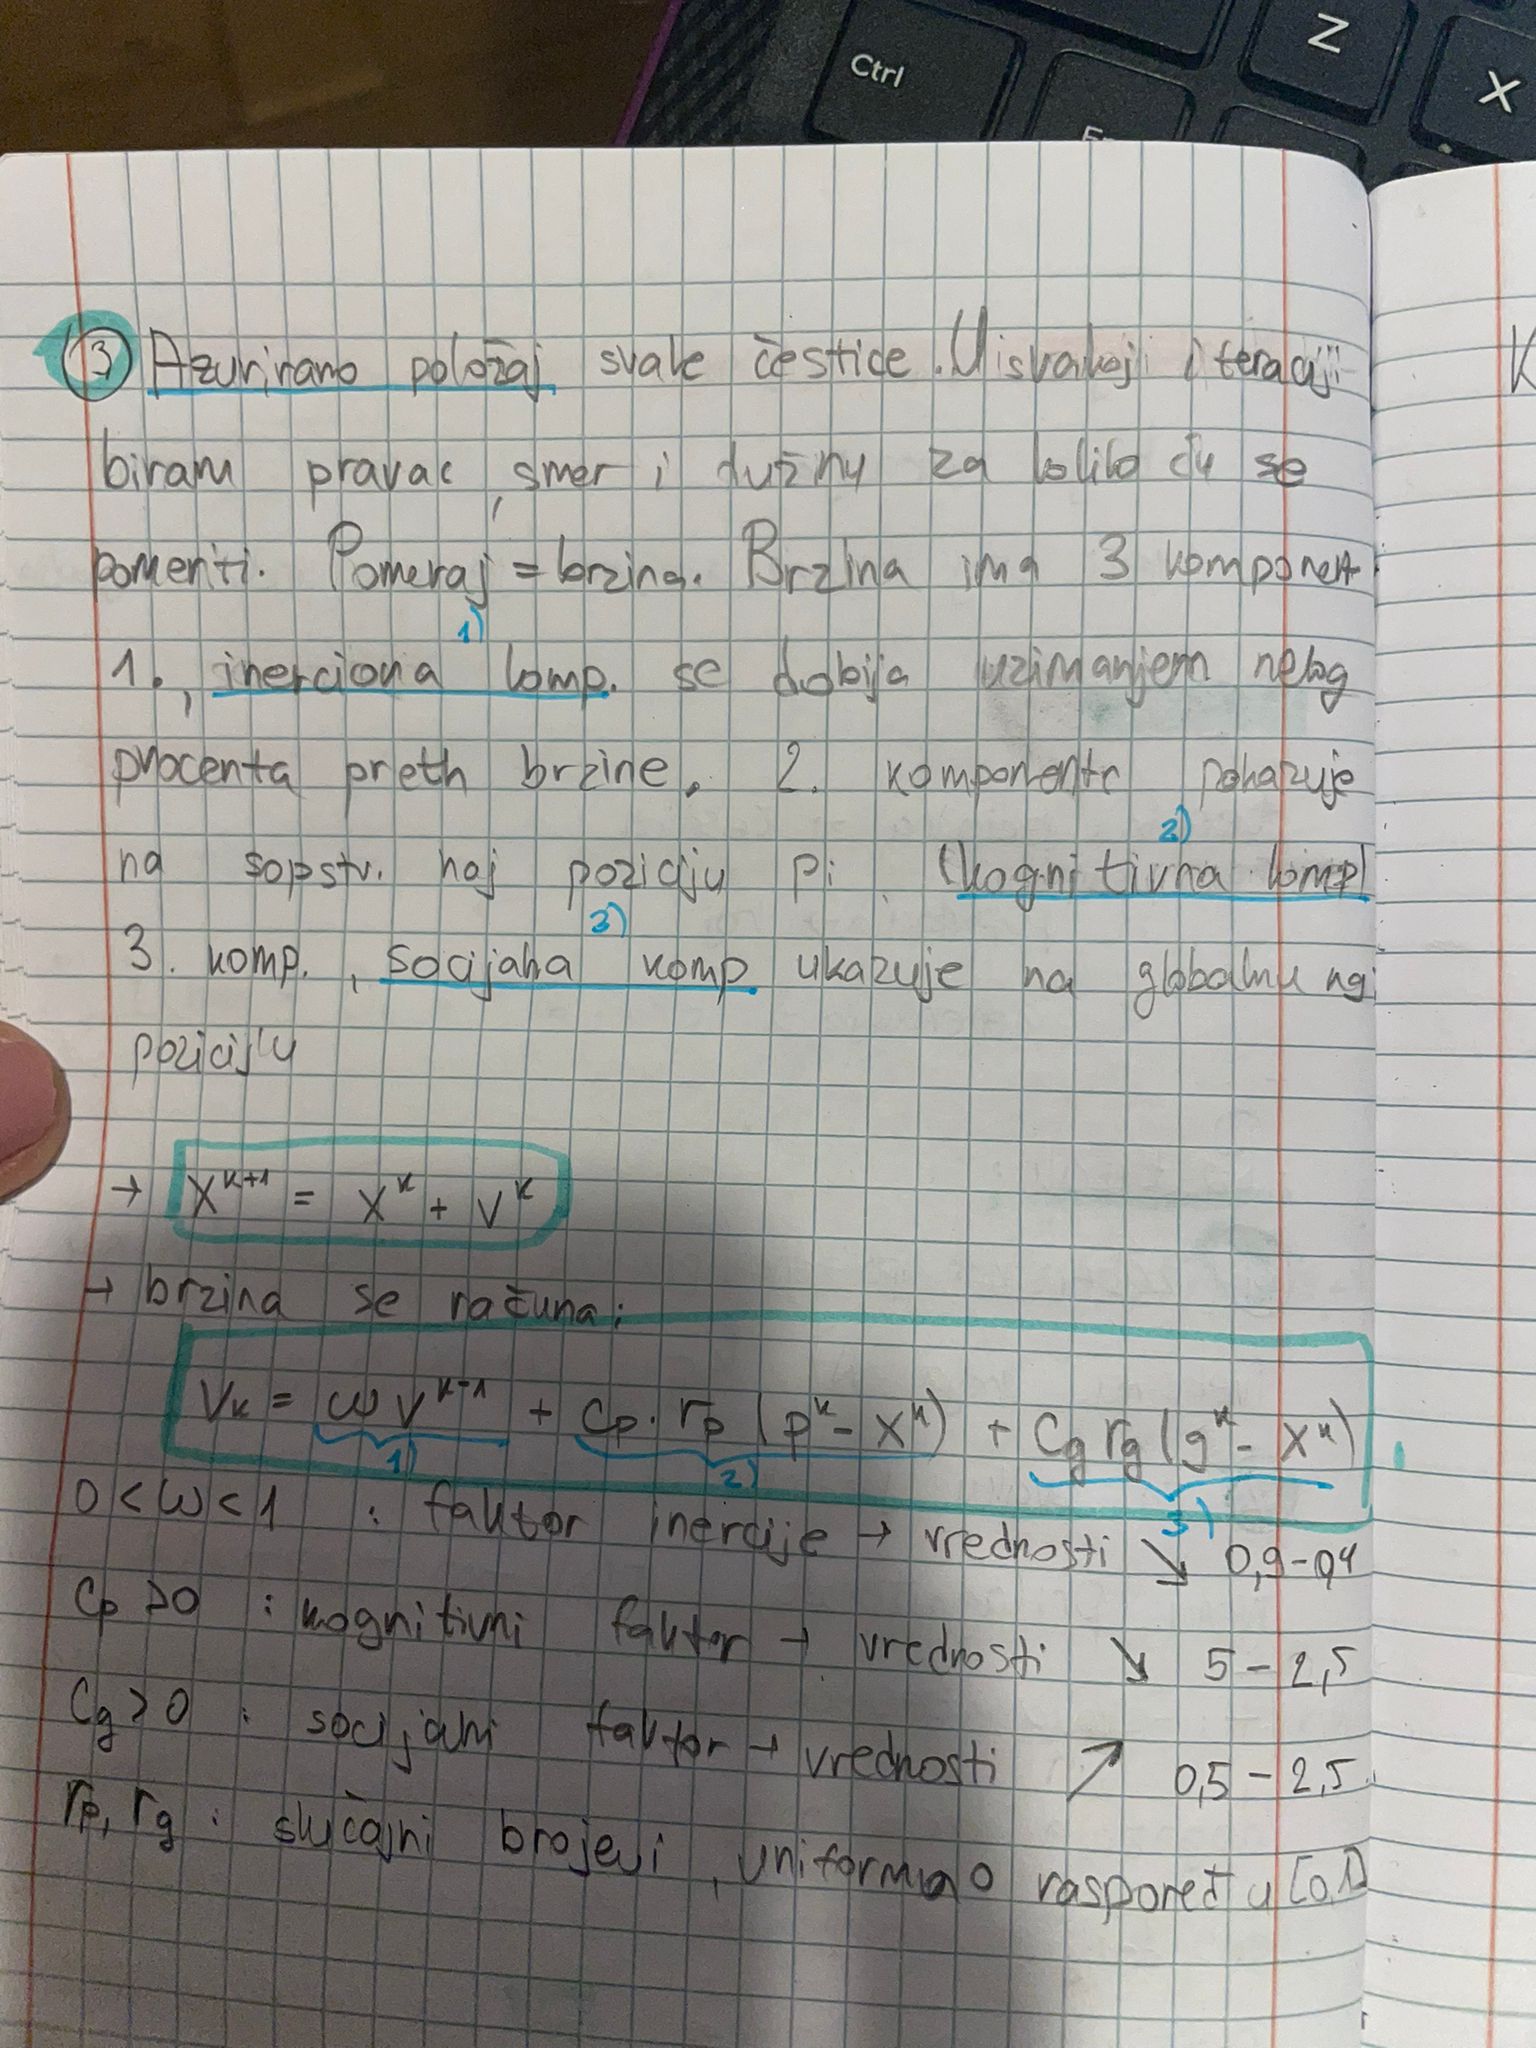 Ctrl
Z
X
③ Azuriramo položaj svake čestice. U svakoj iteraciji
K
biram pravac, smer i dužinu za koliko ću se
pomeriti. Pomeraj = brzina. Brzina ima 3 komponent
1)
1., inerciona komp. se dobija uzimanjem nekog
procenta preth brzine. 2. komponente pokazuje
2)
na sopstv. naj poziciju pi (kognitivna komp)
3)
3. komp., socijalna komp. ukazuje na globalnu naj
poziciju
→ x^{k+1} = x^k + v^k
→ brzina se računa:
V_k = ω v^{k-1} + Cp · rp (p^k - x^k) + Cg rg (g^k - x^k)
1) 2) 3)
0 < ω < 1 : faktor inercije → vrednosti ↘ 0,9-0,4
Cp > 0 : kognitivni faktor → vrednosti ↘ 5 - 2,5
Cg > 0 : socijalni faktor → vrednosti ↗ 0,5 - 2,5
rp, rg : slučajni brojevi, uniformno raspoređ u [0,1]